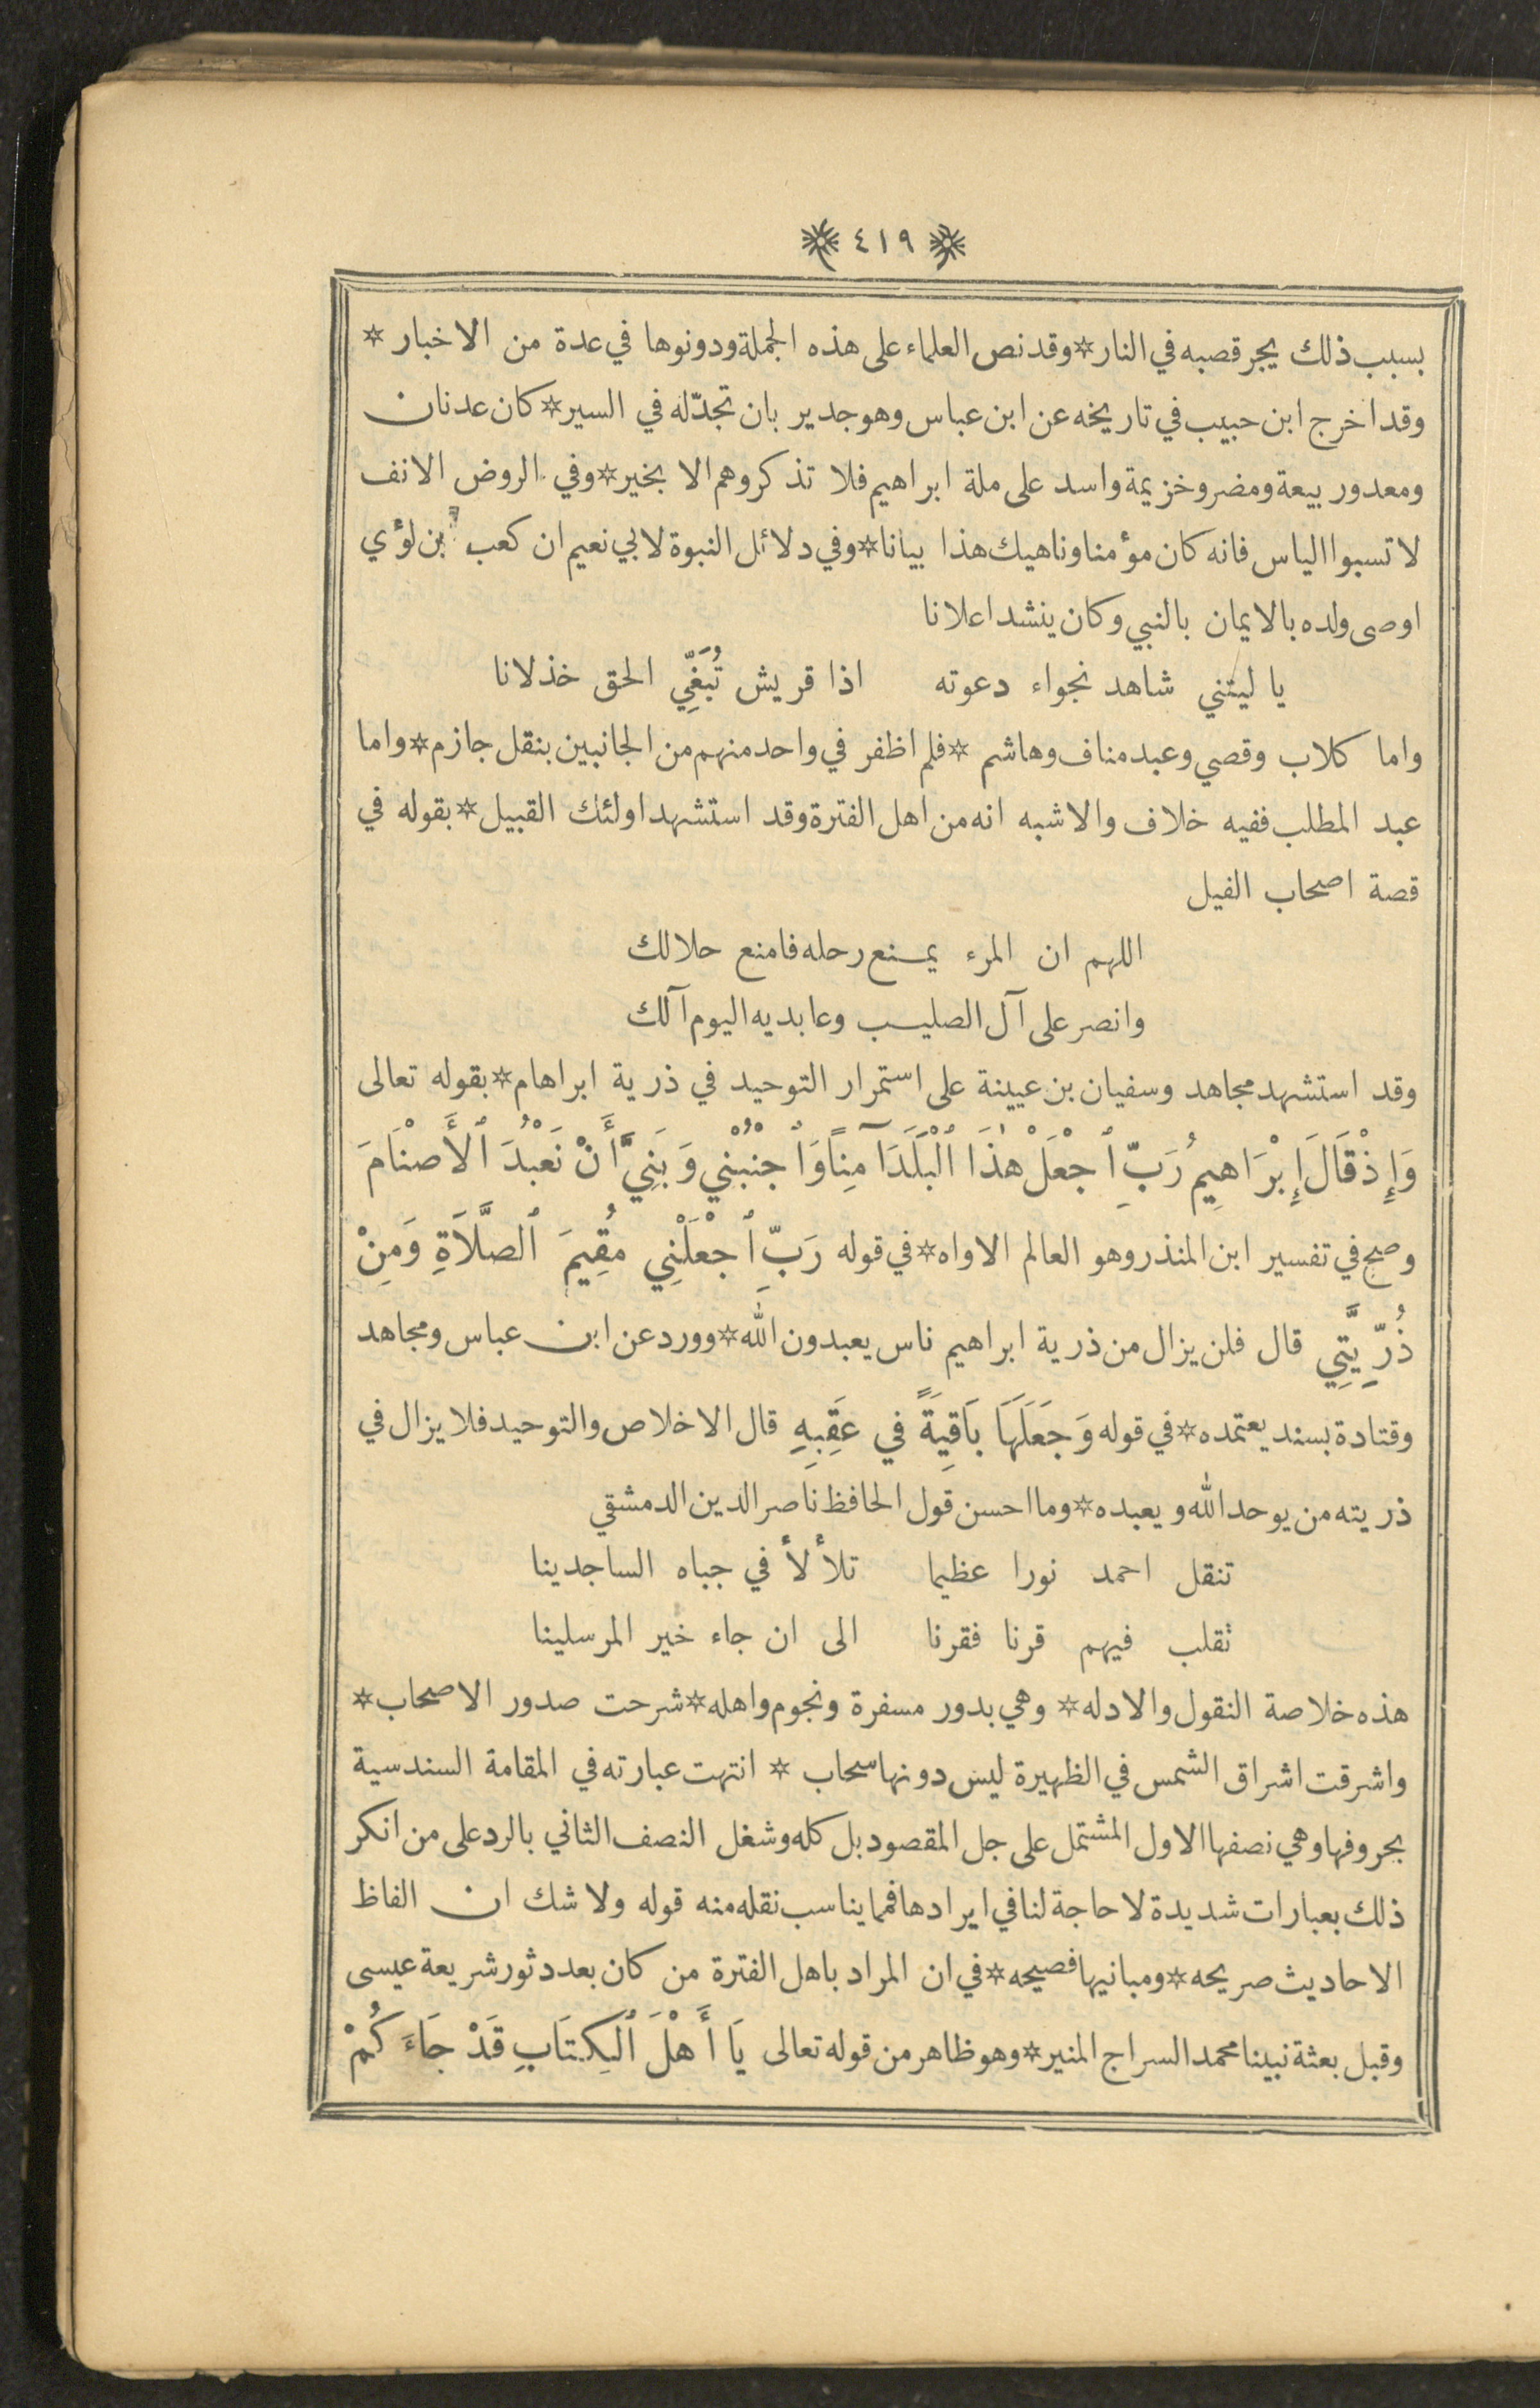 ٤١٩
بسبب ذلك يجر قصبه في النار * وقد نص العلماء على هذه الجملة ودونوها في عدة من الاخبار *
وقد اخرج ابن حبيب في تاريخه عن ابن عباس وهو جدير بان تجدّله في السير * كان عدنان
ومعدور بيعة ومضر وخزيمة واسد على ملة ابراهيم فلا تذكروهم الا بخير * وفي الروض الانف
لا تسبوا الياس فانه كان مؤمنا وناهيك هذا بيانا * وفي دلائل النبوة لابي نعيم ان كعب بن لؤي
اوصى ولده بالايمان بالنبي وكان ينشد اعلانا
يا ليتني شاهد نجواء دعوته اذا قريش تُبَغِّي الحق خذلانا
واما كلاب وقصي وعبد مناف وهاشم * فلم اظفر في واحد منهم من الجانبين بنقل جازم * واما
عبد المطلب ففيه خلاف والاشبه انه من اهل الفترة وقد استشهد اولئك القبيل * بقوله في
قصة اصحاب الفيل
اللهم ان المرء يمنع رحله فامنع حلالك
وانصر على آل الصليب وعابديه اليوم آلك
وقد استشهد مجاهد وسفيان بن عيينة على استمرار التوحيد في ذرية ابراهام * بقوله تعالى
وَإِذْ قَالَ إِبْرَاهِيمُ رَبِّ ٱجْعَلْ هٰذَا ٱلْبَلَدَ آمِنًا وَٱجْنُبْنِي وَبَنِيَّ أَنْ نَعْبُدَ ٱلأَصْنَامَ
وصح في تفسير ابن المنذر وهو العالم الاواه * في قوله رَبِّ ٱجْعَلْنِي مُقِيمَ ٱلصَّلَاةِ وَمِنْ
ذُرِّيَّتِي قال فلن يزال من ذرية ابراهيم ناس يعبدون الله * وورد عن ابن عباس ومجاهد
وقتادة بسند يعتمده * في قوله وَجَعَلَهَا بَاقِيَةً في عَقِبِهِ قال الاخلاص والتوحيد فلا يزال في
ذريته من يوحد الله ويعبده * وما احسن قول الحافظ ناصر الدين الدمشقي
تنقل احمد نورا عظيما تلألأ في جباه الساجدينا
تقلب فيهم قرنا فقرنا الى ان جاء خير المرسلينا
هذه خلاصة النقول والادله * وهي بدور مسفرة ونجوم واهله * شرحت صدور الاصحاب *
واشرقت اشراق الشمس في الظهيرة ليس دونها سحاب * انتهت عبارته في المقامة السندسية
بحروفها وهي نصفها الاول المشتمل على جل المقصود بل كله وشغل النصف الثاني بالرد على من انكر
ذلك بعبارات شديدة لا حاجة لنا في ايرادها فمما يناسب نقله منه قوله ولا شك ان الفاظ
الاحاديث صريحه * ومبانيها فصيحه * في ان المراد باهل الفترة من كان بعد دثور شريعة عيسى
وقبل بعثة نبينا محمد السراج المنير * وهو ظاهر من قوله تعالى يَا أَهْلَ ٱلْكِتَابِ قَدْ جَاءَكُمْ